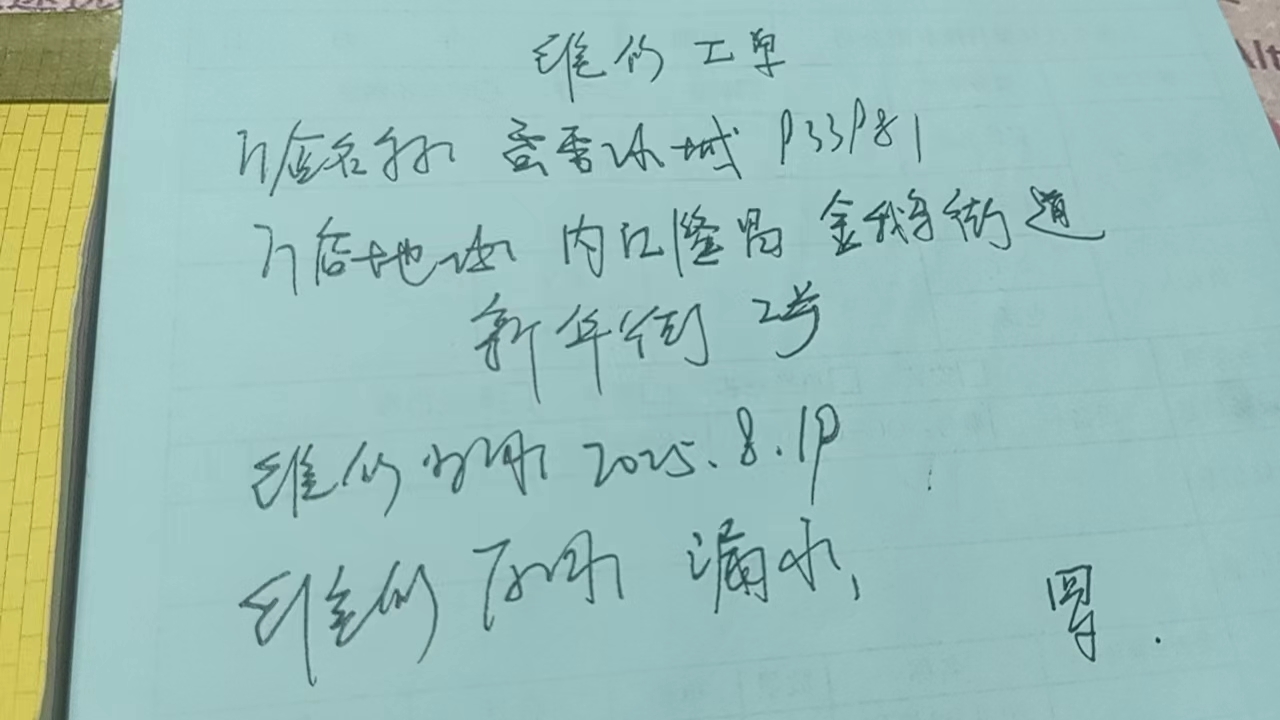 维修工单
门店名称 蜜雪冰城 933981
门店地址 内江隆昌 金鹅街道
新华街 2号
维修 2025.8.19
维修 漏水,
Alt